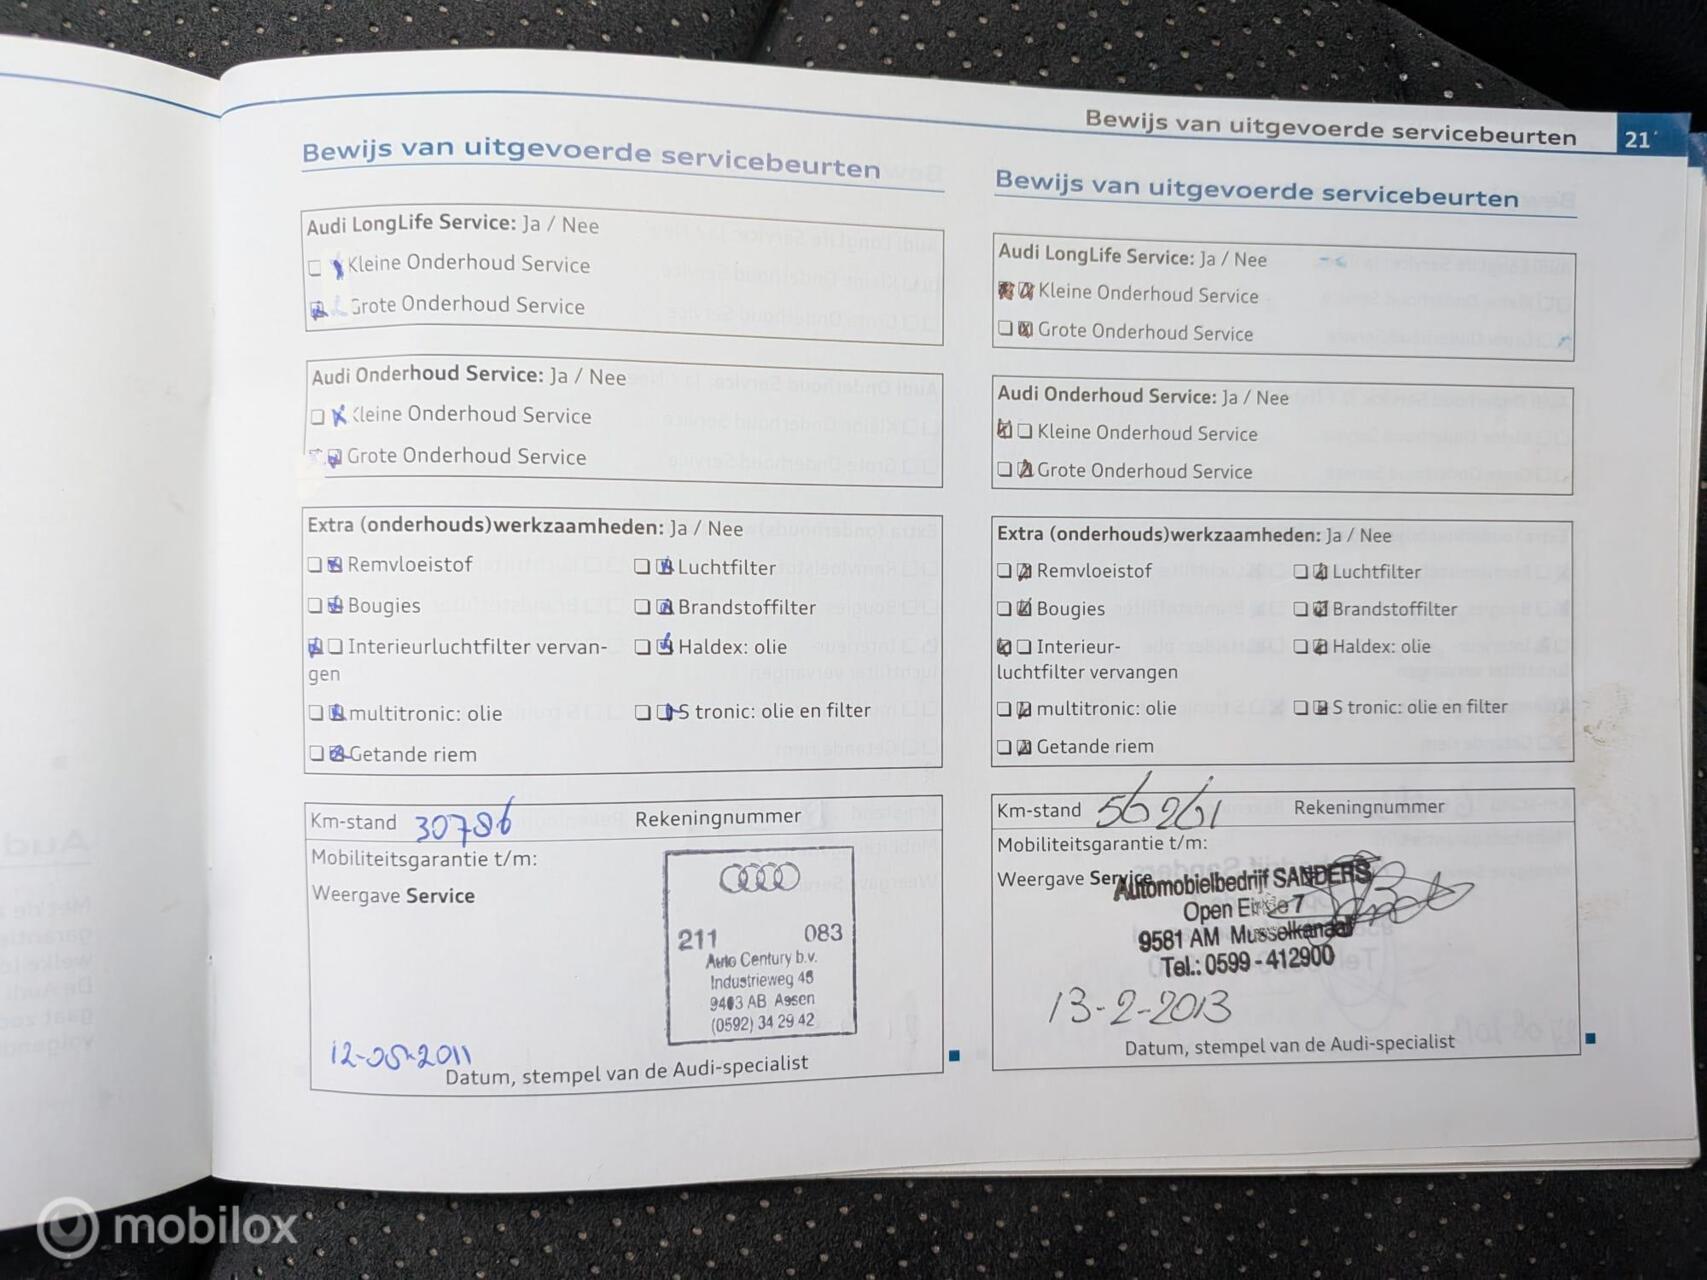 Bewijs van uitgevoerde servicebeurten 21
Bewijs van uitgevoerde servicebeurten
Audi LongLife Service: Ja / Nee
Kleine Onderhoud Service
Grote Onderhoud Service
Audi Onderhoud Service: Ja / Nee
Kleine Onderhoud Service
Grote Onderhoud Service
Extra (onderhouds)werkzaamheden: Ja / Nee
Remvloeistof Luchtfilter
Bougies Brandstoffilter
Interieurluchtfilter vervan- Haldex: olie
gen
multitronic: olie S tronic: olie en filter
Getande riem
Km-stand 30786 Rekeningnummer
Mobiliteitsgarantie t/m:
Weergave Service
211 083
Auto Century b.v.
Industrieweg 45
9403 AB Assen
(0592) 34 29 42
12-05-2011
Datum, stempel van de Audi-specialist
Bewijs van uitgevoerde servicebeurten
Audi LongLife Service: Ja / Nee
Kleine Onderhoud Service
Grote Onderhoud Service
Audi Onderhoud Service: Ja / Nee
Kleine Onderhoud Service
Grote Onderhoud Service
Extra (onderhouds)werkzaamheden: Ja / Nee
Remvloeistof Luchtfilter
Bougies Brandstoffilter
Interieur- Haldex: olie
luchtfilter vervangen
multitronic: olie S tronic: olie en filter
Getande riem
Km-stand 56261 Rekeningnummer
Mobiliteitsgarantie t/m:
Weergave Service
Automobielbedrijf SANDERS
Open Einde 7
9581 AM Musselkanaal
Tel.: 0599 - 412900
13-2-2013
Datum, stempel van de Audi-specialist
mobilox